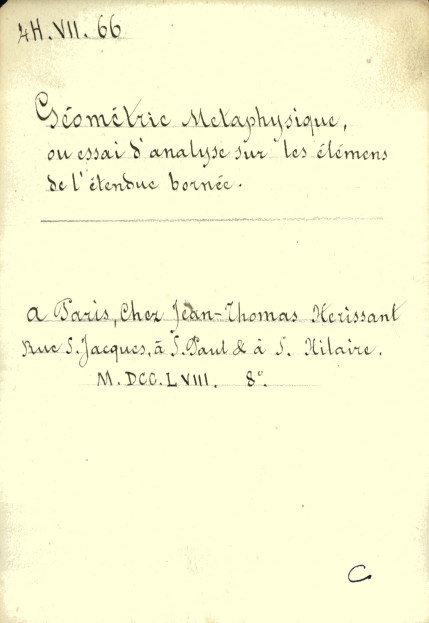 4H.VII.66
Géométrie Metaphysique,
ou essai d'analyse sur les élémens
de l'étendue bornée.
a Paris, Chez Jean-Thomas Herissant
Rue S. Jacques, à S. Paul & à S. Hilaire.
M.DCC.LVIII. 8°.
C